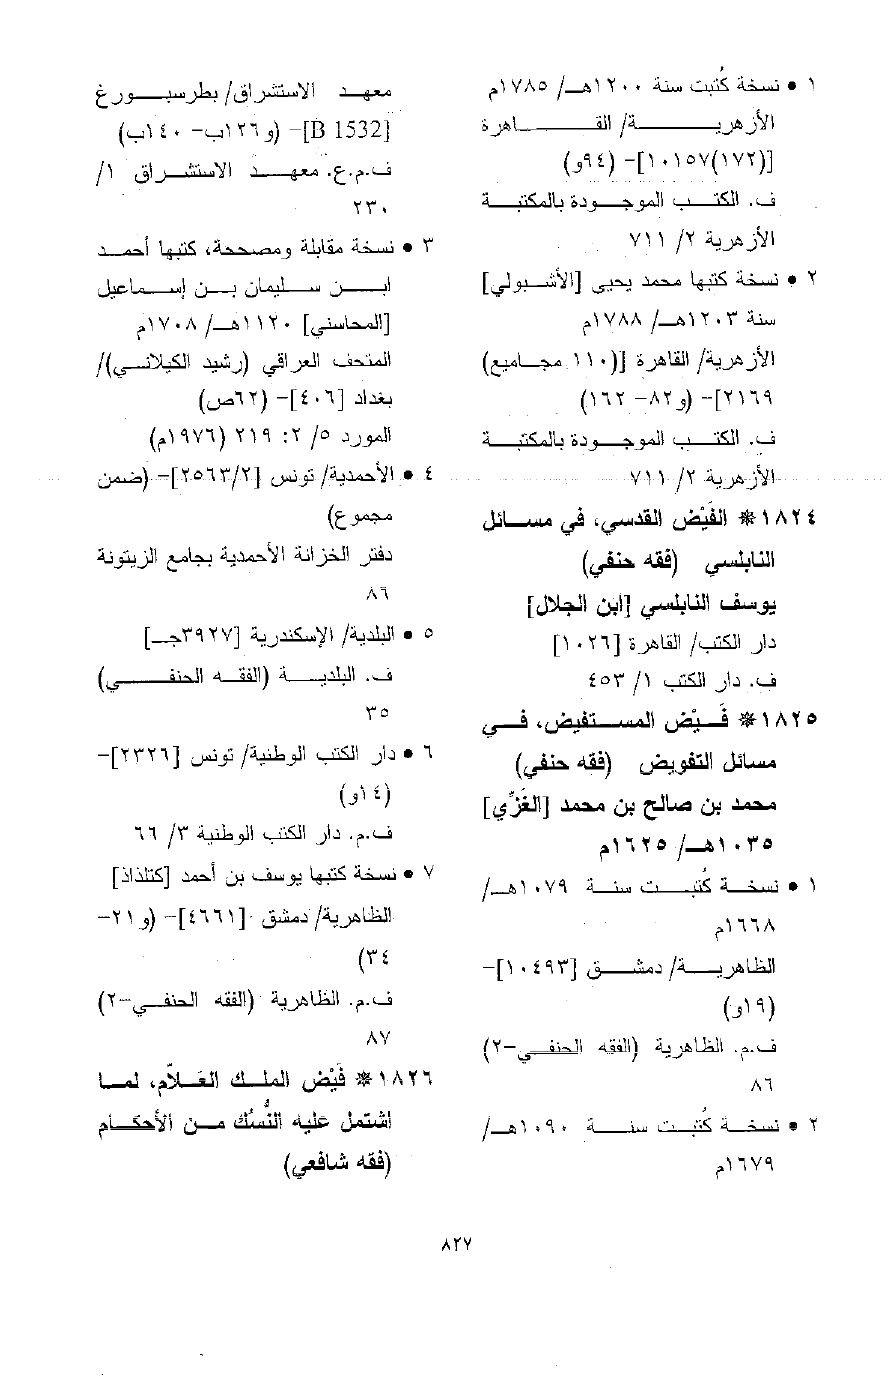 ١ • نسخة كُتبت سنة ١٢٠٠هـ/ ١٧٨٥م
الأزهرية/ القاهرة
[(١٧٢)١٠١٥٧]- (٩٤و)
ف. الكتب الموجودة بالمكتبة
الأزهرية ٢/ ٧١١
٢ • نسخة كتبها محمد يحيى [الأشبولي]
سنة ١٢٠٣هـ/ ١٧٨٨م
الأزهرية/ القاهرة [(١١٠ مجاميع)
٢١٦٩]- (و٨٢- ١٦٢)
ف. الكتب الموجودة بالمكتبة
الأزهرية ٢/ ٧١١
١٨٢٤* الفَيْض القدسي، في مسائل
النابلسي (فقه حنفي)
يوسف النابلسي [ابن الجلال]
دار الكتب/ القاهرة [١٠٢٦]
ف. دار الكتب ١/ ٤٥٣
١٨٢٥* فَيْض المستفيض، في
مسائل التفويض (فقه حنفي)
محمد بن صالح بن محمد [الغَزِّي]
١٠٣٥هـ/ ١٦٢٥م
١ • نسخة كُتبت سنة ١٠٧٩هـ/
١٦٦٨م
الظاهرية/ دمشق [١٠٤٩٣]-
(١٩و)
ف.م. الظاهرية (الفقه الحنفي-٢)
٨٦
٢ • نسخة كُتبت سنة ١٠٩٠هـ/
١٦٧٩م
معهد الاستشراق/ بطرسبورغ
[B 1532]- (و١٢٦ب- ١٤٠ب)
ف.م.ع. معهد الاستشراق ١/
٢٣٠
٣ • نسخة مقابلة ومصححة، كتبها أحمد
ابن سليمان بن إسماعيل
[المحاسني] ١١٢٠هـ/ ١٧٠٨م
المتحف العراقي (رشيد الكيلاني)/
بغداد [٤٠٦]- (٦٢ص)
المورد ٥/ ٢: ٢١٩ (١٩٧٦م)
٤ • الأحمدية/ تونس [٢٥٦٣/٢]- (ضمن
مجموع)
دفتر الخزانة الأحمدية بجامع الزيتونة
٨٦
٥ • البلدية/ الإسكندرية [٣٩٢٧جـ]
ف. البلدية (الفقه الحنفي)
٣٥
٦ • دار الكتب الوطنية/ تونس [٢٣٢٦]-
(١٤و)
ف.م. دار الكتب الوطنية ٣/ ٦٦
٧ • نسخة كتبها يوسف بن أحمد [كتلذاذ]
الظاهرية/ دمشق [٤٦٦١]- (و٢١-
٣٤)
ف.م. الظاهرية (الفقه الحنفي-٢)
٨٧
١٨٢٦* فَيْض الملك العَلاَّم، لما
اشتمل عليه النُّسُك من الأحكام
(فقه شافعي)
٨٢٧